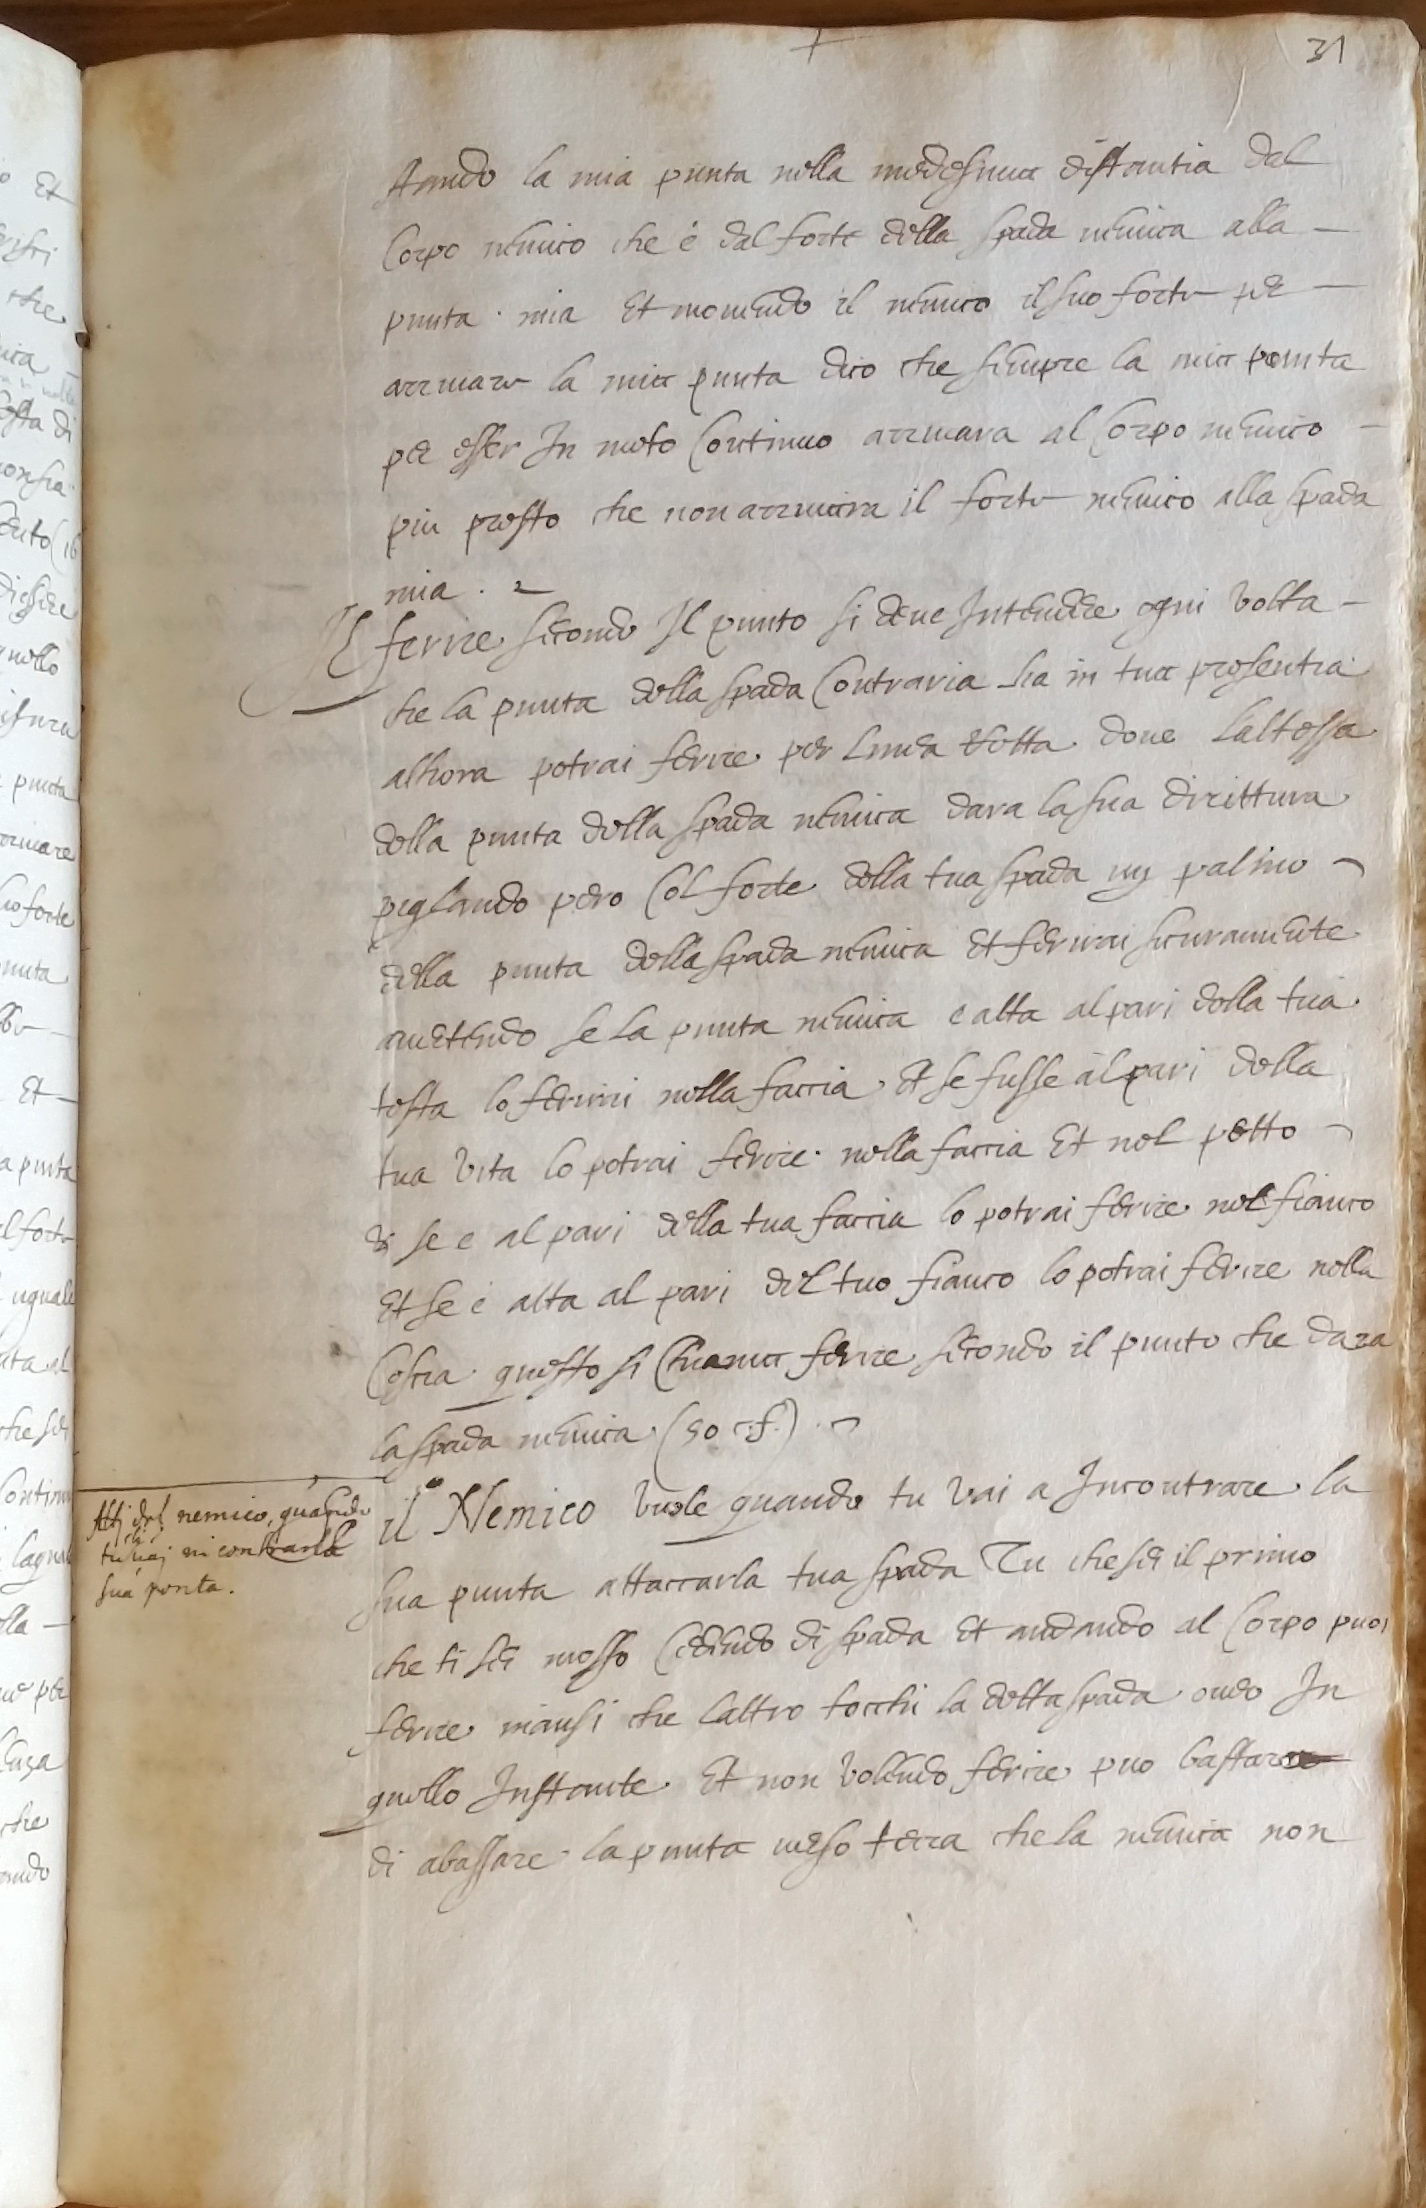 31
stando la mia punta nella medesima distantia dal
Corpo nemico che è dal forte della spada nemica alla
punta mia Et movendo il nemico il suo forte per
arrivare la mia punta dico che sempre la mia punta
per esser In moto Continuo arrivara al Corpo nemico
piu presto che non arrivara il forte nemico alla spada
mia.
Il ferire secondo Il punto si deve Intendere ogni volta
che la punta della spada Contraria sia in tua presentia
alhora potrai ferire per linea Retta dove laltessa
della punta della spada nemica dara la sua dirittura
pigliando pero Col forte della tua spada un palmo
della punta della spada nemica Et ferirai sicuramente
avertendo se la punta nemica e alta al pari della tua
testa lo ferirai nella faccia Et se fusse al pari della
tua vita lo potrai ferire nella faccia Et nel petto
& se e al pari della tua faccia lo potrai ferire nel fianco
Et se è alta al pari del tuo fianco lo potrai ferire nella
Coscia questo si Chiama ferire secondo il punto che dara
la spada nemica (50 c.f.)
il Nemico vuole quando tu vai a Incontrare la
sua punta attaccar la tua spada Tu che sei il primo
che ti sei mosso Cedendo di spada Et andando al Corpo puoi
ferire inansi che laltro tocchi la detta spada overo In
quello Instante Et non volendo ferire puo bastare
di abassare la punta verso terra che la nemica non
Atti del nemico, quando
tu vai incontrar la
sua ponta.